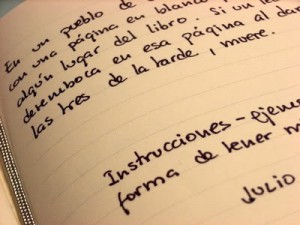 En un pueblo de
con una página en blanco
algún lugar del libro. Si un
desemboca en esa página al dar
las tres de la tarde, muere.
Instrucciones - ejem
forma de tener mi
JULIO